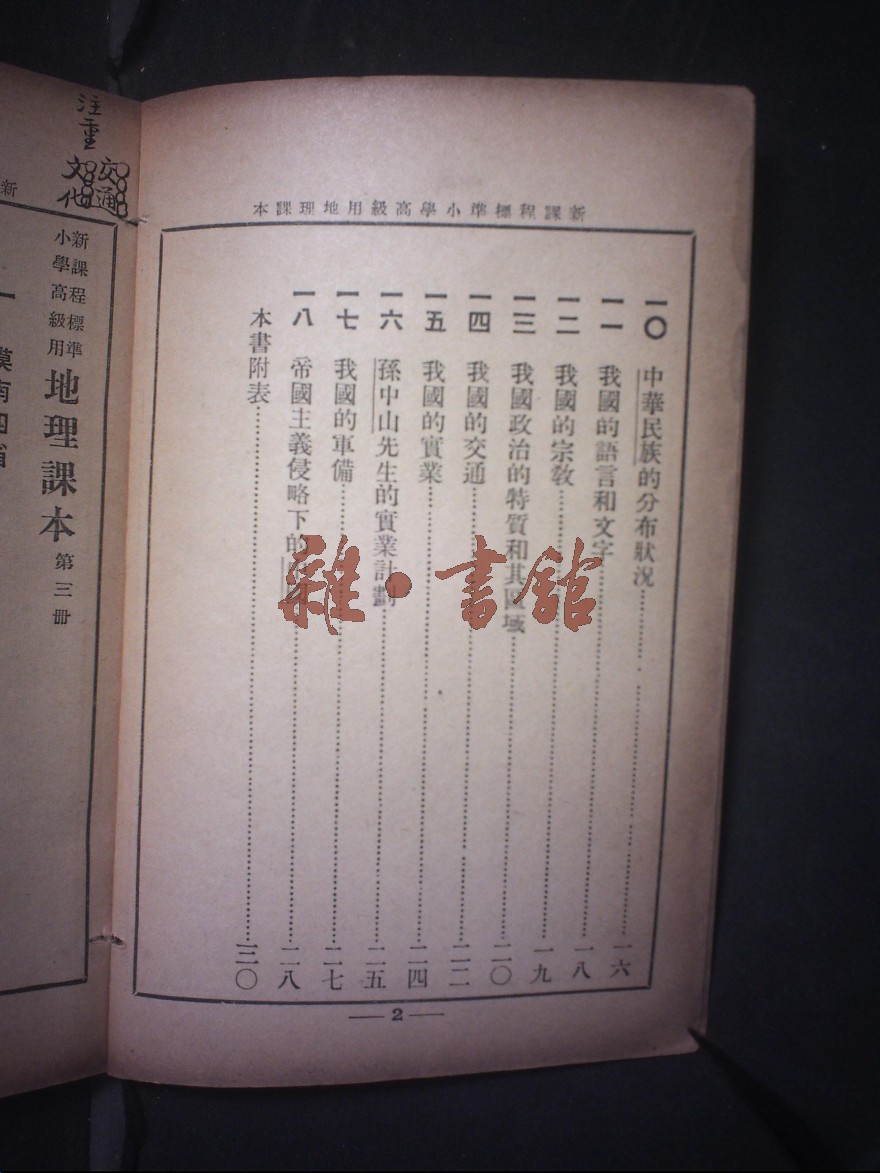 新課程標準小學高級用地理課本
一〇 中華民族的分布狀況……一六
一一 我國的語言和文字……一八
一二 我國的宗教……一九
一三 我國政治的特質和其區域……二〇
一四 我國的交通……二二
一五 我國的實業……二四
一六 孫中山先生的實業計劃……二五
一七 我國的軍備……二七
一八 帝國主義侵略下的……二八
本書附表……三〇
2
雜·書館
注重
交通
文化
新
新課程標準
小學高級用
地理課本 第三冊
一 漠南四省